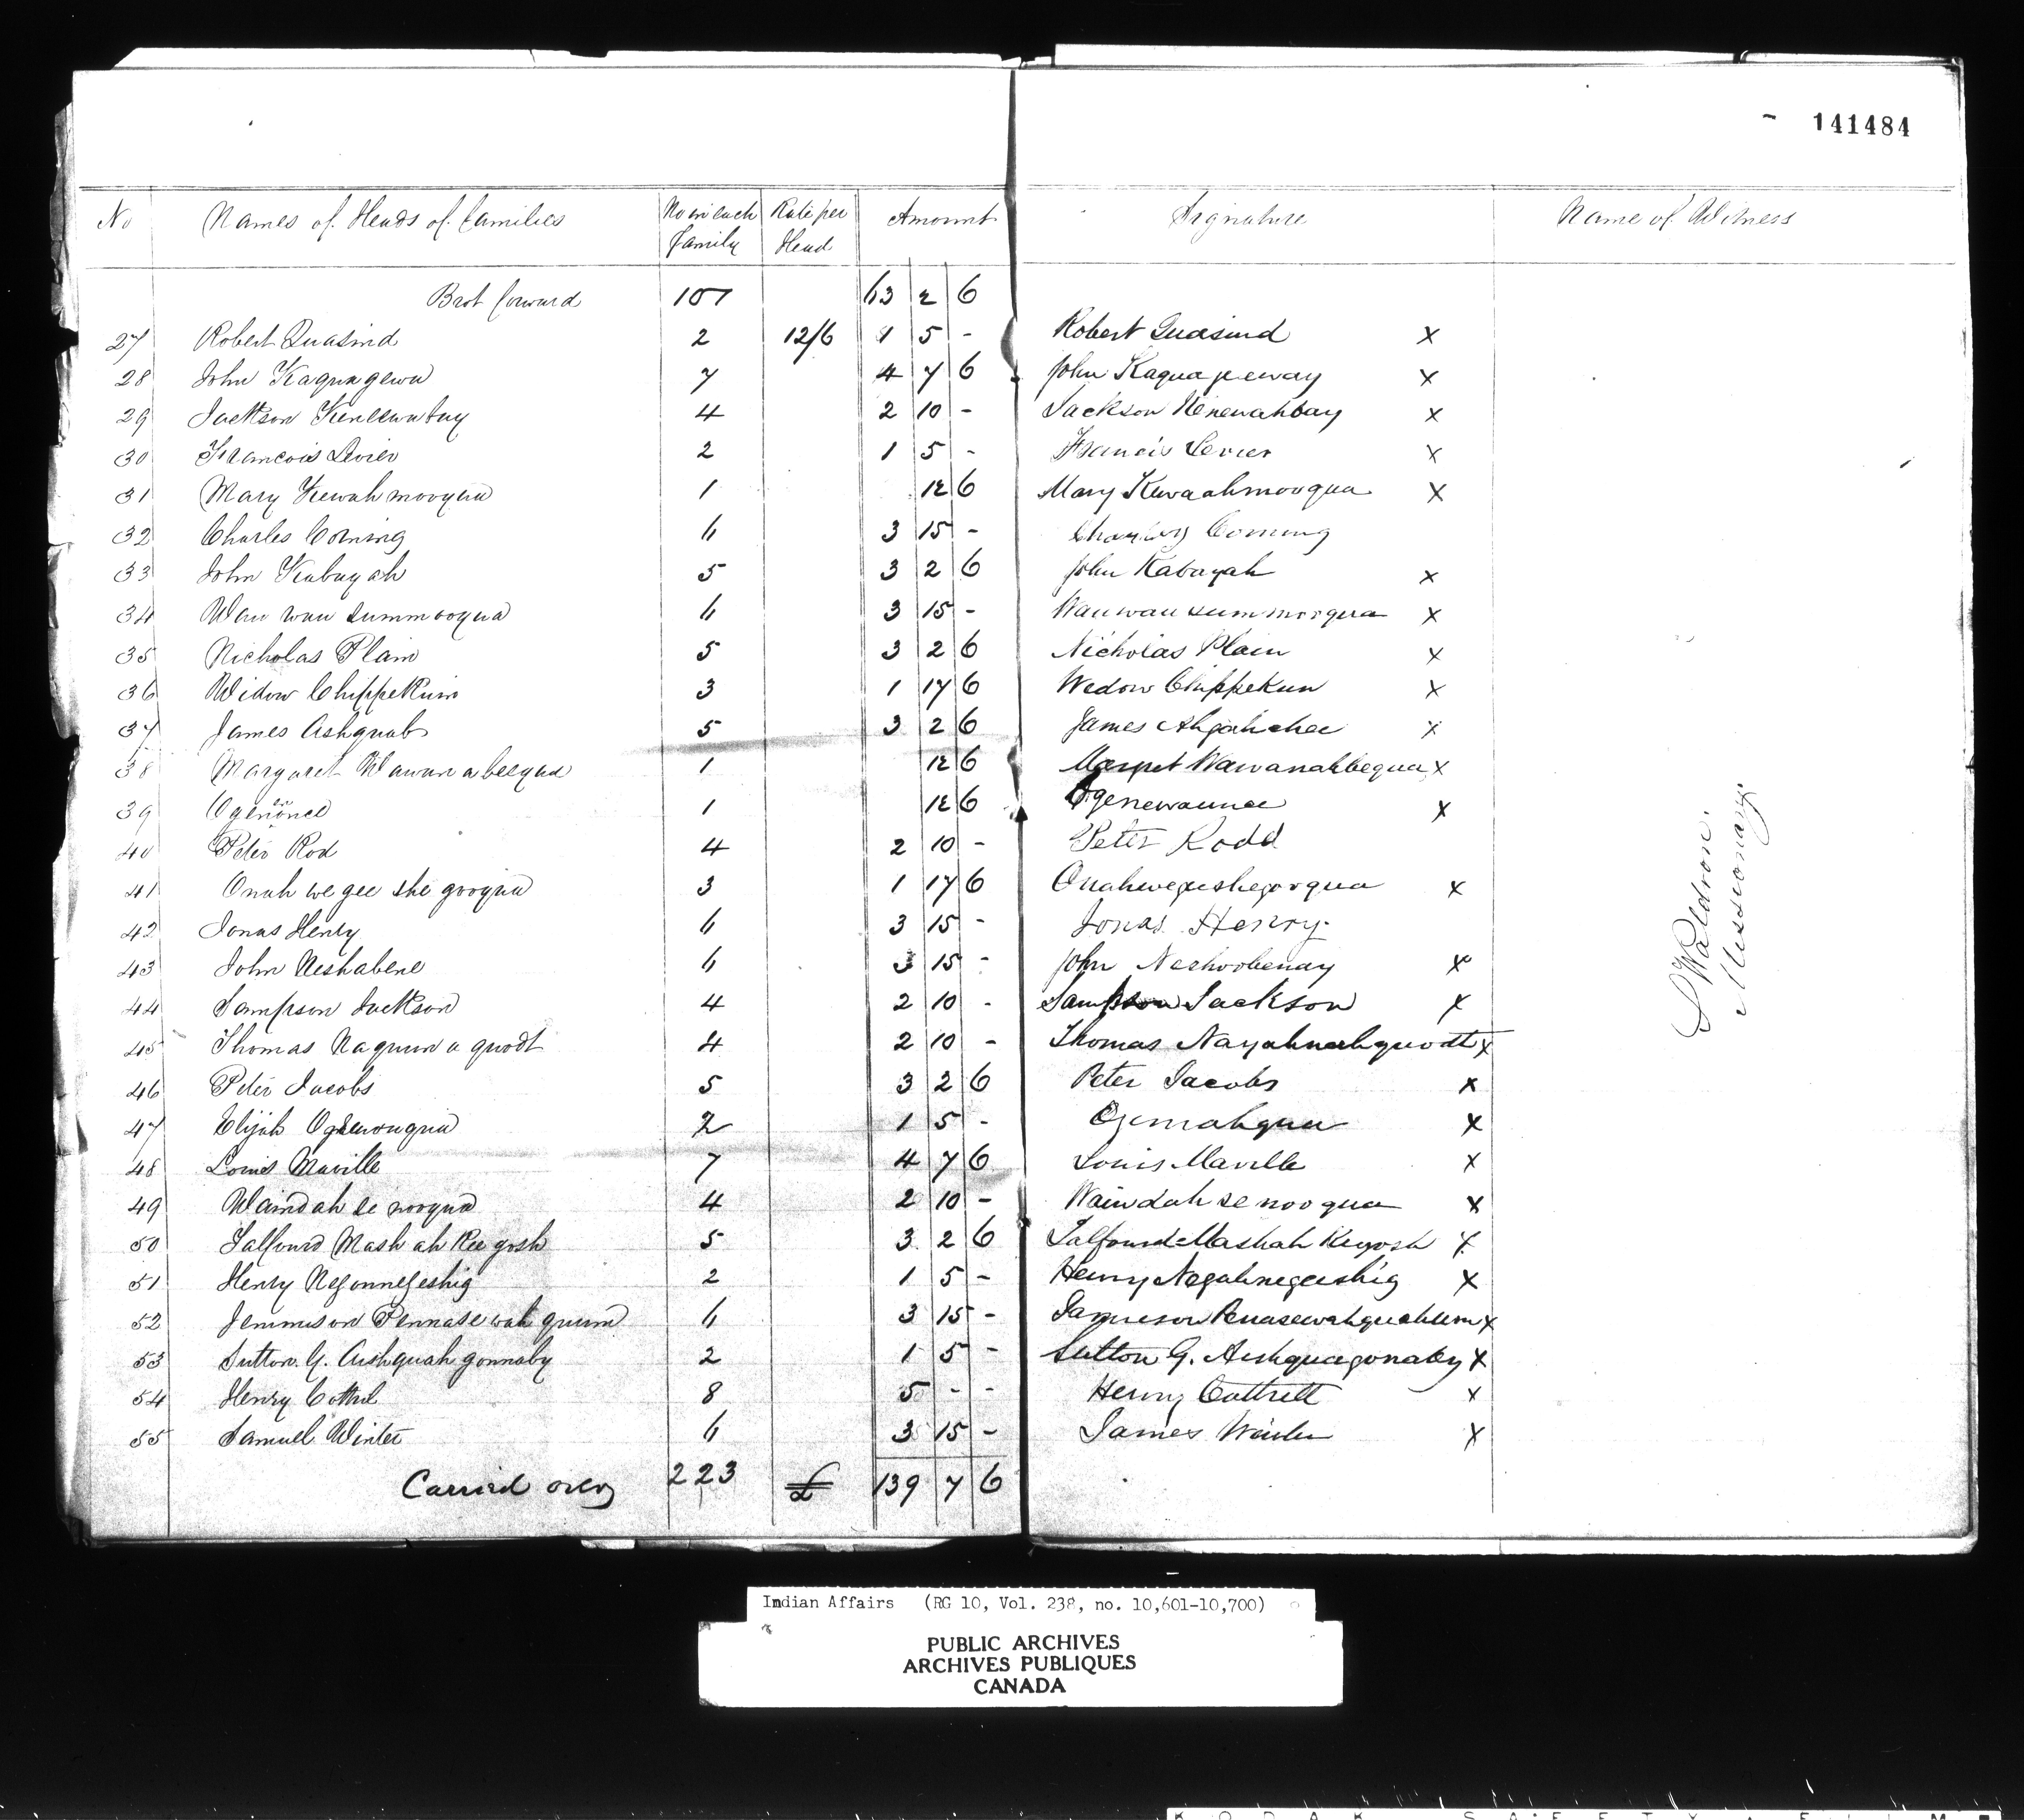 141484
No Names of Heads of families No in each family Rate per Head Amount Signature Name of Witness
Brot forward 101 63 2 6
27 Robert Quasind 2 12/6 1 5 - Robert Quasind X
28 John Kaquagewa 7 4 7 6 John Kaquapeway X
29 Jackson Keneewabay 4 2 10 - Jackson Kenewahbay X
30 Francois Levier 2 1 5 - Francis Levier X
31 Mary Kewahmooqua 1 12 6 Mary Kewaahmooqua X
32 Charles Corning 6 3 15 - Corning
33 John Kabayah 5 3 2 6 John Kabayah X
34 Wau wau summooqua 6 3 15 - Wauwau summooqua X
35 Nicholas Plain 5 3 2 6 Nicholas Plain X
36 Widow Chippekun 3 1 17 6 Wedow Chippekun X
37 James Ashquab 5 3 2 6 James Ahgahchee X
38 Margaret Wawanabeequa 1 12 6 Wawanahbequa X
39 1 12 6 Ogenewaunce X
40 Peter Rod 4 2 10 - Peter Rodd
41 Onah we gee she gooqua 3 1 17 6 Onahwegeshegooqua X
42 Jonas Henry 6 3 15 - Jonas Henry.
43 John Neshabene 6 3 15 - John Neshoobenay X
44 Sampson Jackson 4 2 10 - Sampson Jackson X
45 Thomas Naguun a quodt 4 2 10 - Thomas Nayahnahquodt X
46 Peter Jacobs 5 3 2 6 Peter Jacobs X
47 Elijah 2 1 5 - Ogemahqua X
48 Louis Maville 7 4 7 6 Louis Maville X
49 Waindah se nooqua 4 2 10 - Waindah se nooqua X
50 Salfourd Mash ah Kee gosh 5 3 2 6 Salfourd Mashah Keegosh X
51 Henry Negonnegeshig 2 1 5 - Henry Negahnegeeshig X
52 Jemmison Pennase wah quum 6 3 15 - Jamieson Penasewahquahum X
53 Sutton G. Aishquah gonnaby 2 1 5 - Sutton G. Aishquagonaby X
54 Henry Cottrel 8 5 - - Henry Cottrell X
55 Samuel Winter 6 3 15 - James Winter X
Carried over 223 £ 139 7 6
S Waldron.
Missionary.
Indian Affairs (RG 10, Vol. 238, no. 10,601-10,700)
PUBLIC ARCHIVES
ARCHIVES PUBLIQUES
CANADA
KODAK SAFETY FILM